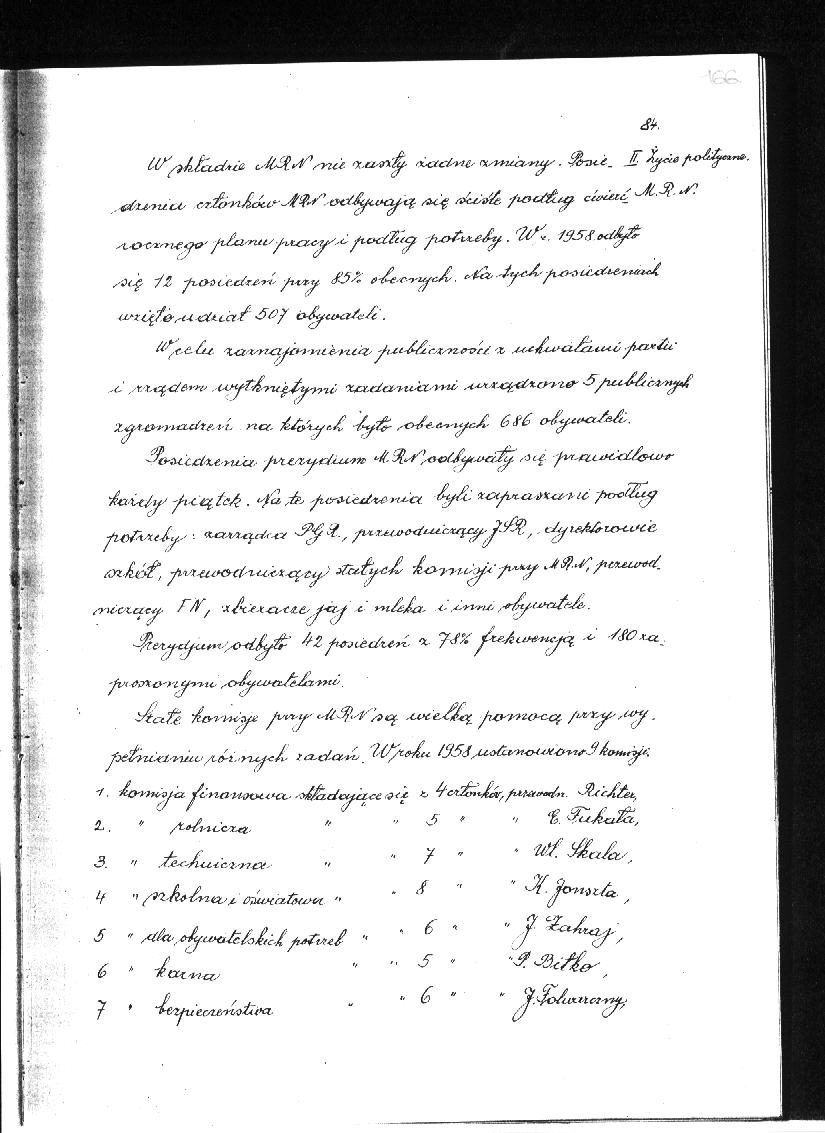 166
84.
W składzie MRN nie zaszły żadne zmiany. Posie- II. Życie polityczne.
dzenia członków MRN odbywają się ściśle podług ćwierć M.R.N.
rocznego planu pracy i podług potrzeby. W r. 1958 odbyło
się 12 posiedzeń przy 85% obecnych. Na tych posiedzeniach
wzięło udział 507 obywateli.
W celu zaznajomienia publiczności z uchwałami partii
i rządem wytkniętymi zadaniami urządzono 5 publicznych
zgromadzeń na których było obecnych 686 obywateli.
Posiedzenia prezydium MRN odbywały się prawidłowo
każdy piątek. Na te posiedzenia byli zapraszani podług
potrzeby: zarządca PGR., przewodniczący JSR, dyrektorowie
szkół, przewodniczący stałych komisji przy MRN, przewod-
niczący FN, zbieracze jaj i mleka i inni obywatele.
Prezydjum odbyło 42 posiedzeń z 78% frekwencją i 180 za-
proszonymi obywatelami.
Stałe komisje przy MRN są wielką pomocą przy wy-
pełnianiu różnych zadań. W roku 1958 ustanowiono 9 komisji:
1. komisja finansowa składające się z 4 członków, przewodn. Richter,
2. " rolnicza " " 5 " " E. Fukała,
3. " techniczna " " 7 " " Wł. Skala,
4 " szkolna i oświatowa " " 8 " " K. Jonszta,
5 " dla obywatelskich potrzeb " " 6 " " J. Zahraj,
6 " karna " " 5 " " P. Bitko,
7 " bezpieczeństwa " " 6 " " J. Folwarczny,